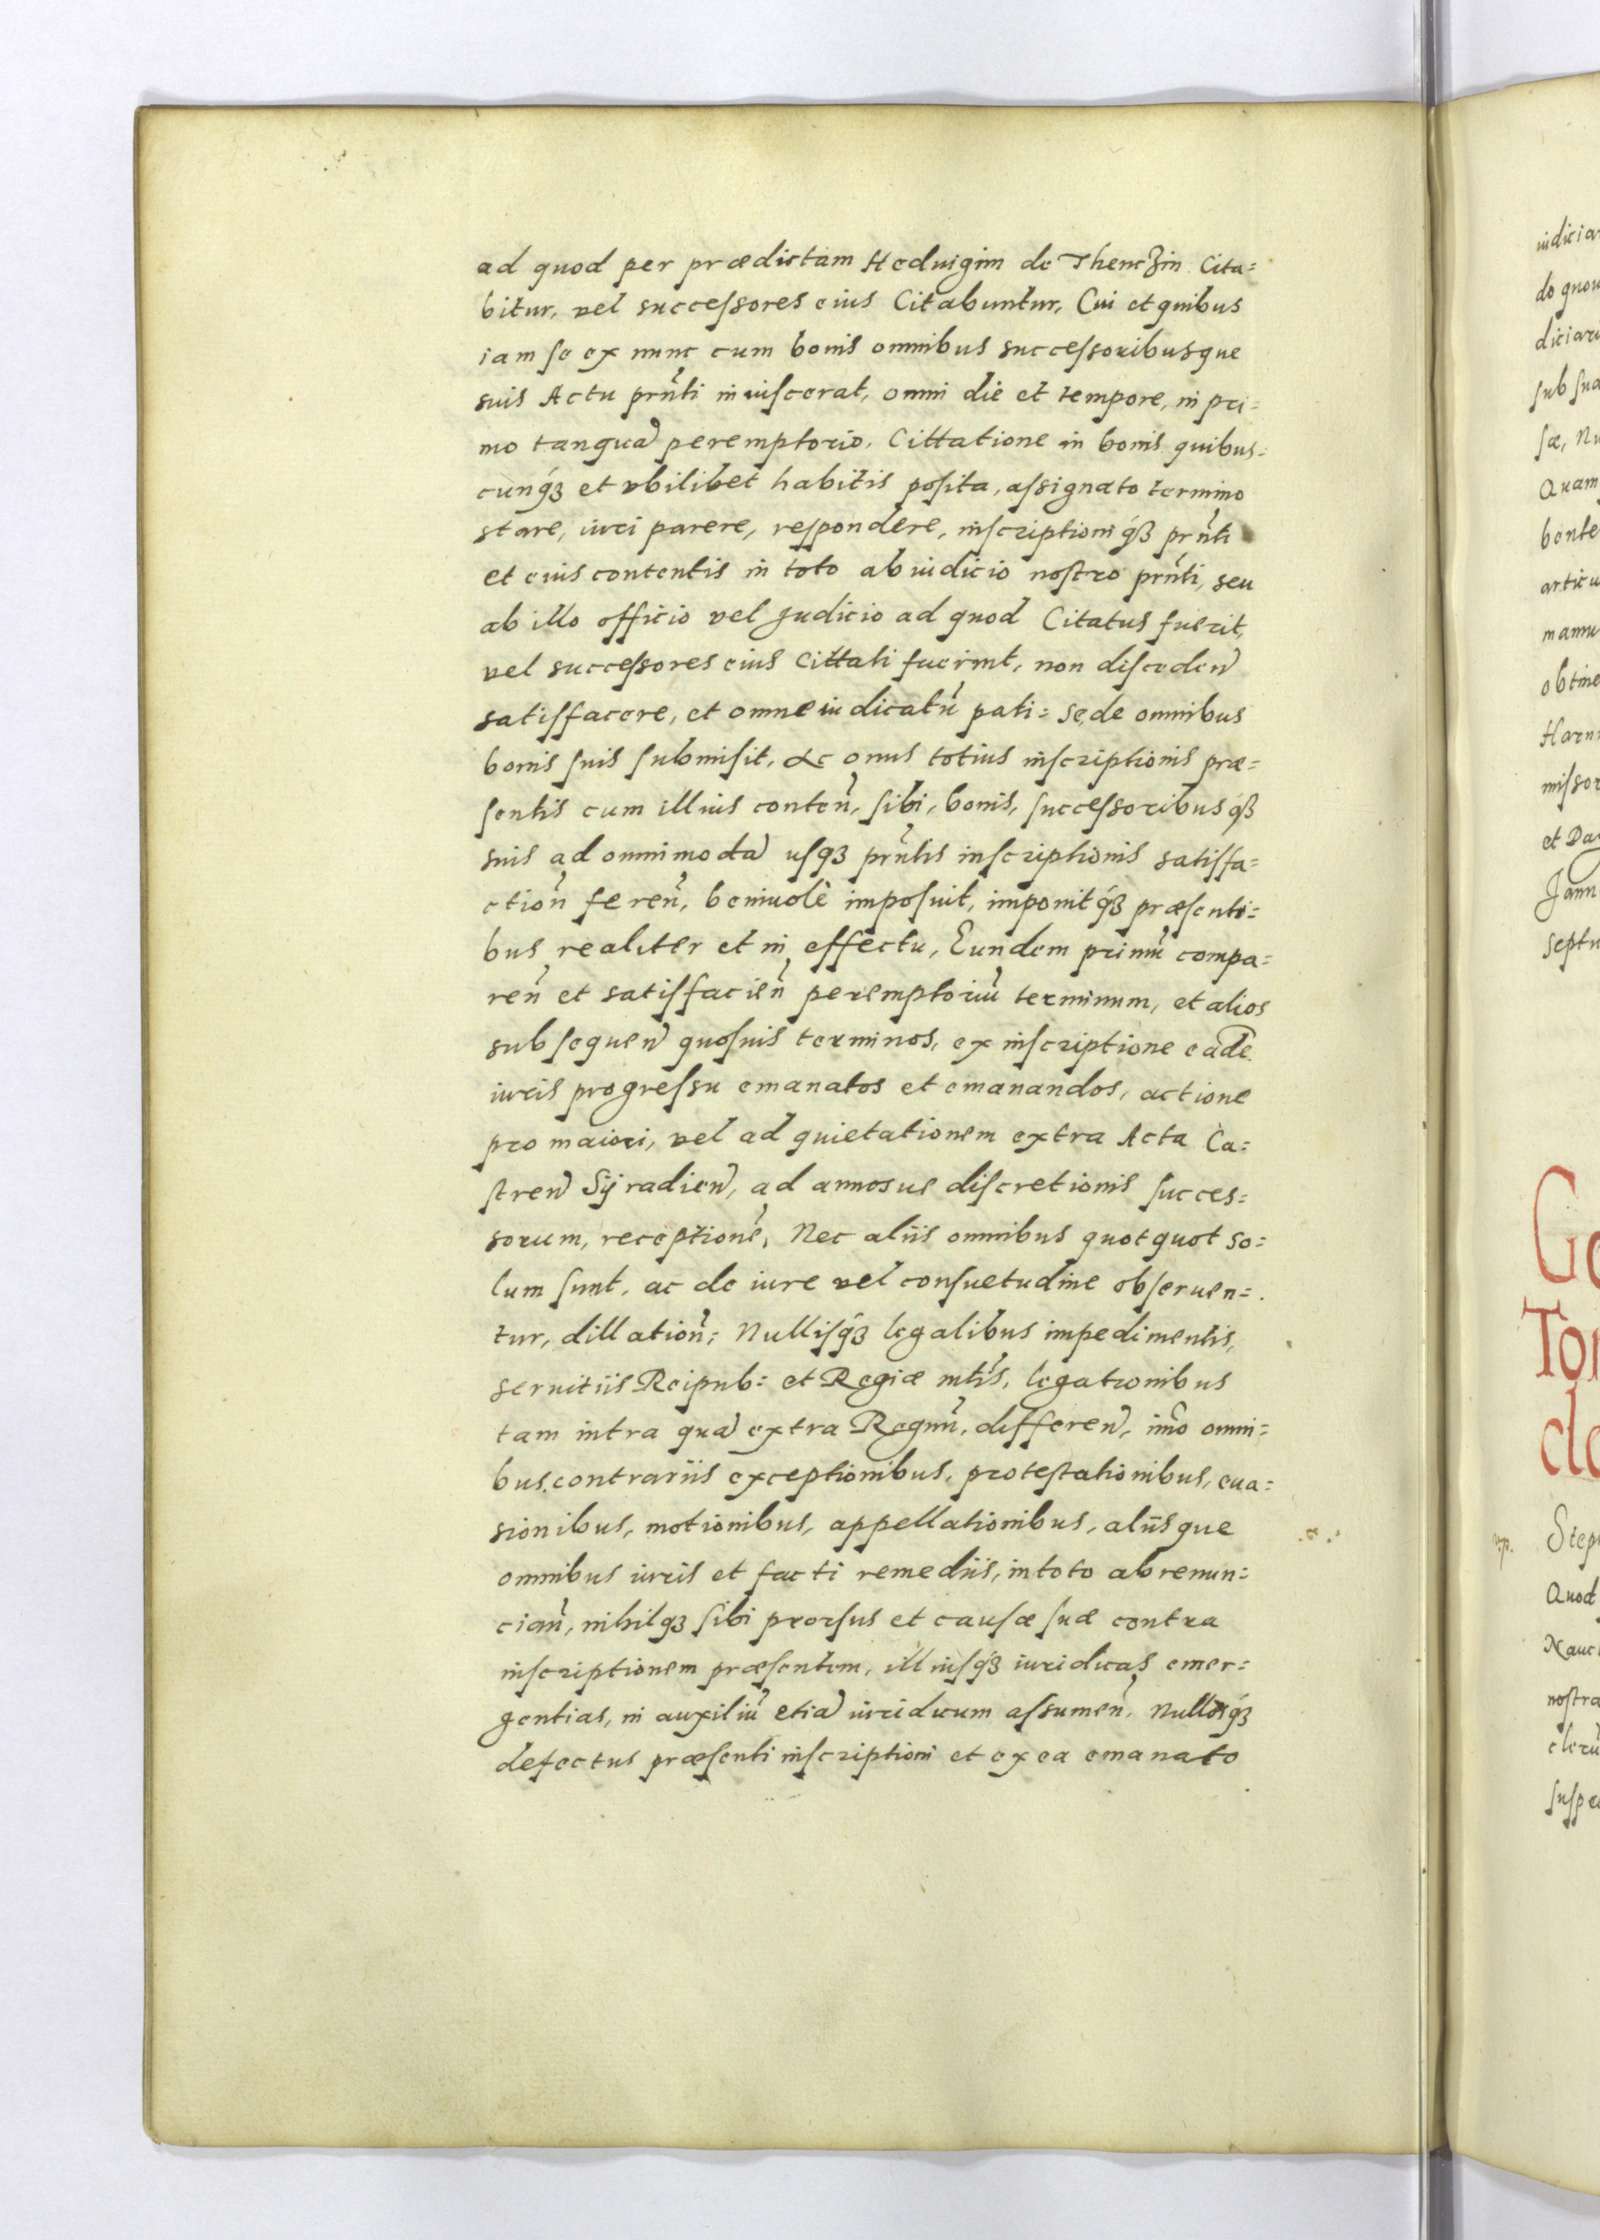 ad quod per prædictam Heduigim de Thenczin Cita=
bitur, vel successores eius Citabuntur, Cui et quibus
iam se ex nunc cum bonis omnibus successoribusque
suis Actu prñti inuiscerat, omni die et tempore, in pri=
mo tanquã peremptorio, Cittatione in bonis quibus=
cunqꝫ et vbilibet habitis posita, assignato termino
stare, iuri parere, respondere, inscriptioniqꝫ prñti
et eius contentis in toto ab iudicio nostro prñti, seu
ab illo officio vel Judicio ad quod Citatus fuerit,
vel successores eius Cittati fuerint, non disceden̄
satisfacere, et omne iudicatū pati= se, de omnibus
bonis suis submisit, &c onus totius inscriptionis præ=
sentis cum illius conten̄, sibi, bonis, successoribusqꝫ
suis ad omnimodã usqꝫ prñtis inscriptionis satisfa=
ction̄ feren̄, beniuolè imposuit, imponitqꝫ præsenti=
bus realiter et in effectu, Eundem primū compa=
ren̄ et satisfacien̄ peremptoriū terminum, et alios
subsequen̄ quosuis terminos, ex inscriptione eadē
iuris progressu emanatos et emanandos, actione
pro maiori, vel ad quietationem extra Acta Ca=
stren̄ Syradien̄, ad annosue discretionis succes=
sorum, receptionē, Nec aliis omnibus quotquot so=
lum sunt, ac de iure vel consuetudine obseruen=
tur, dillation̄; Nullisqꝫ legalibus impedimentis,
seruitiis Reipub: et Regiæ mtis, legationibus
tam intra quã extra Regnū, differen̄, imò omni=
bus contrariis exceptionibus, protestationibus, eua=
sionibus, motionibus, appellationibus, aliisque
omnibus iuris et facti remediis, in toto abrenun=
cian̄, nihilqꝫ sibi prorsus et causæ suæ contra
inscriptionem præsentem, illiusqꝫ iuridicas emer=
gentias, in auxiliū etiã iuridicum assumen̄, Nullosqꝫ
defectus præsenti inscriptioni et ex ea emanato